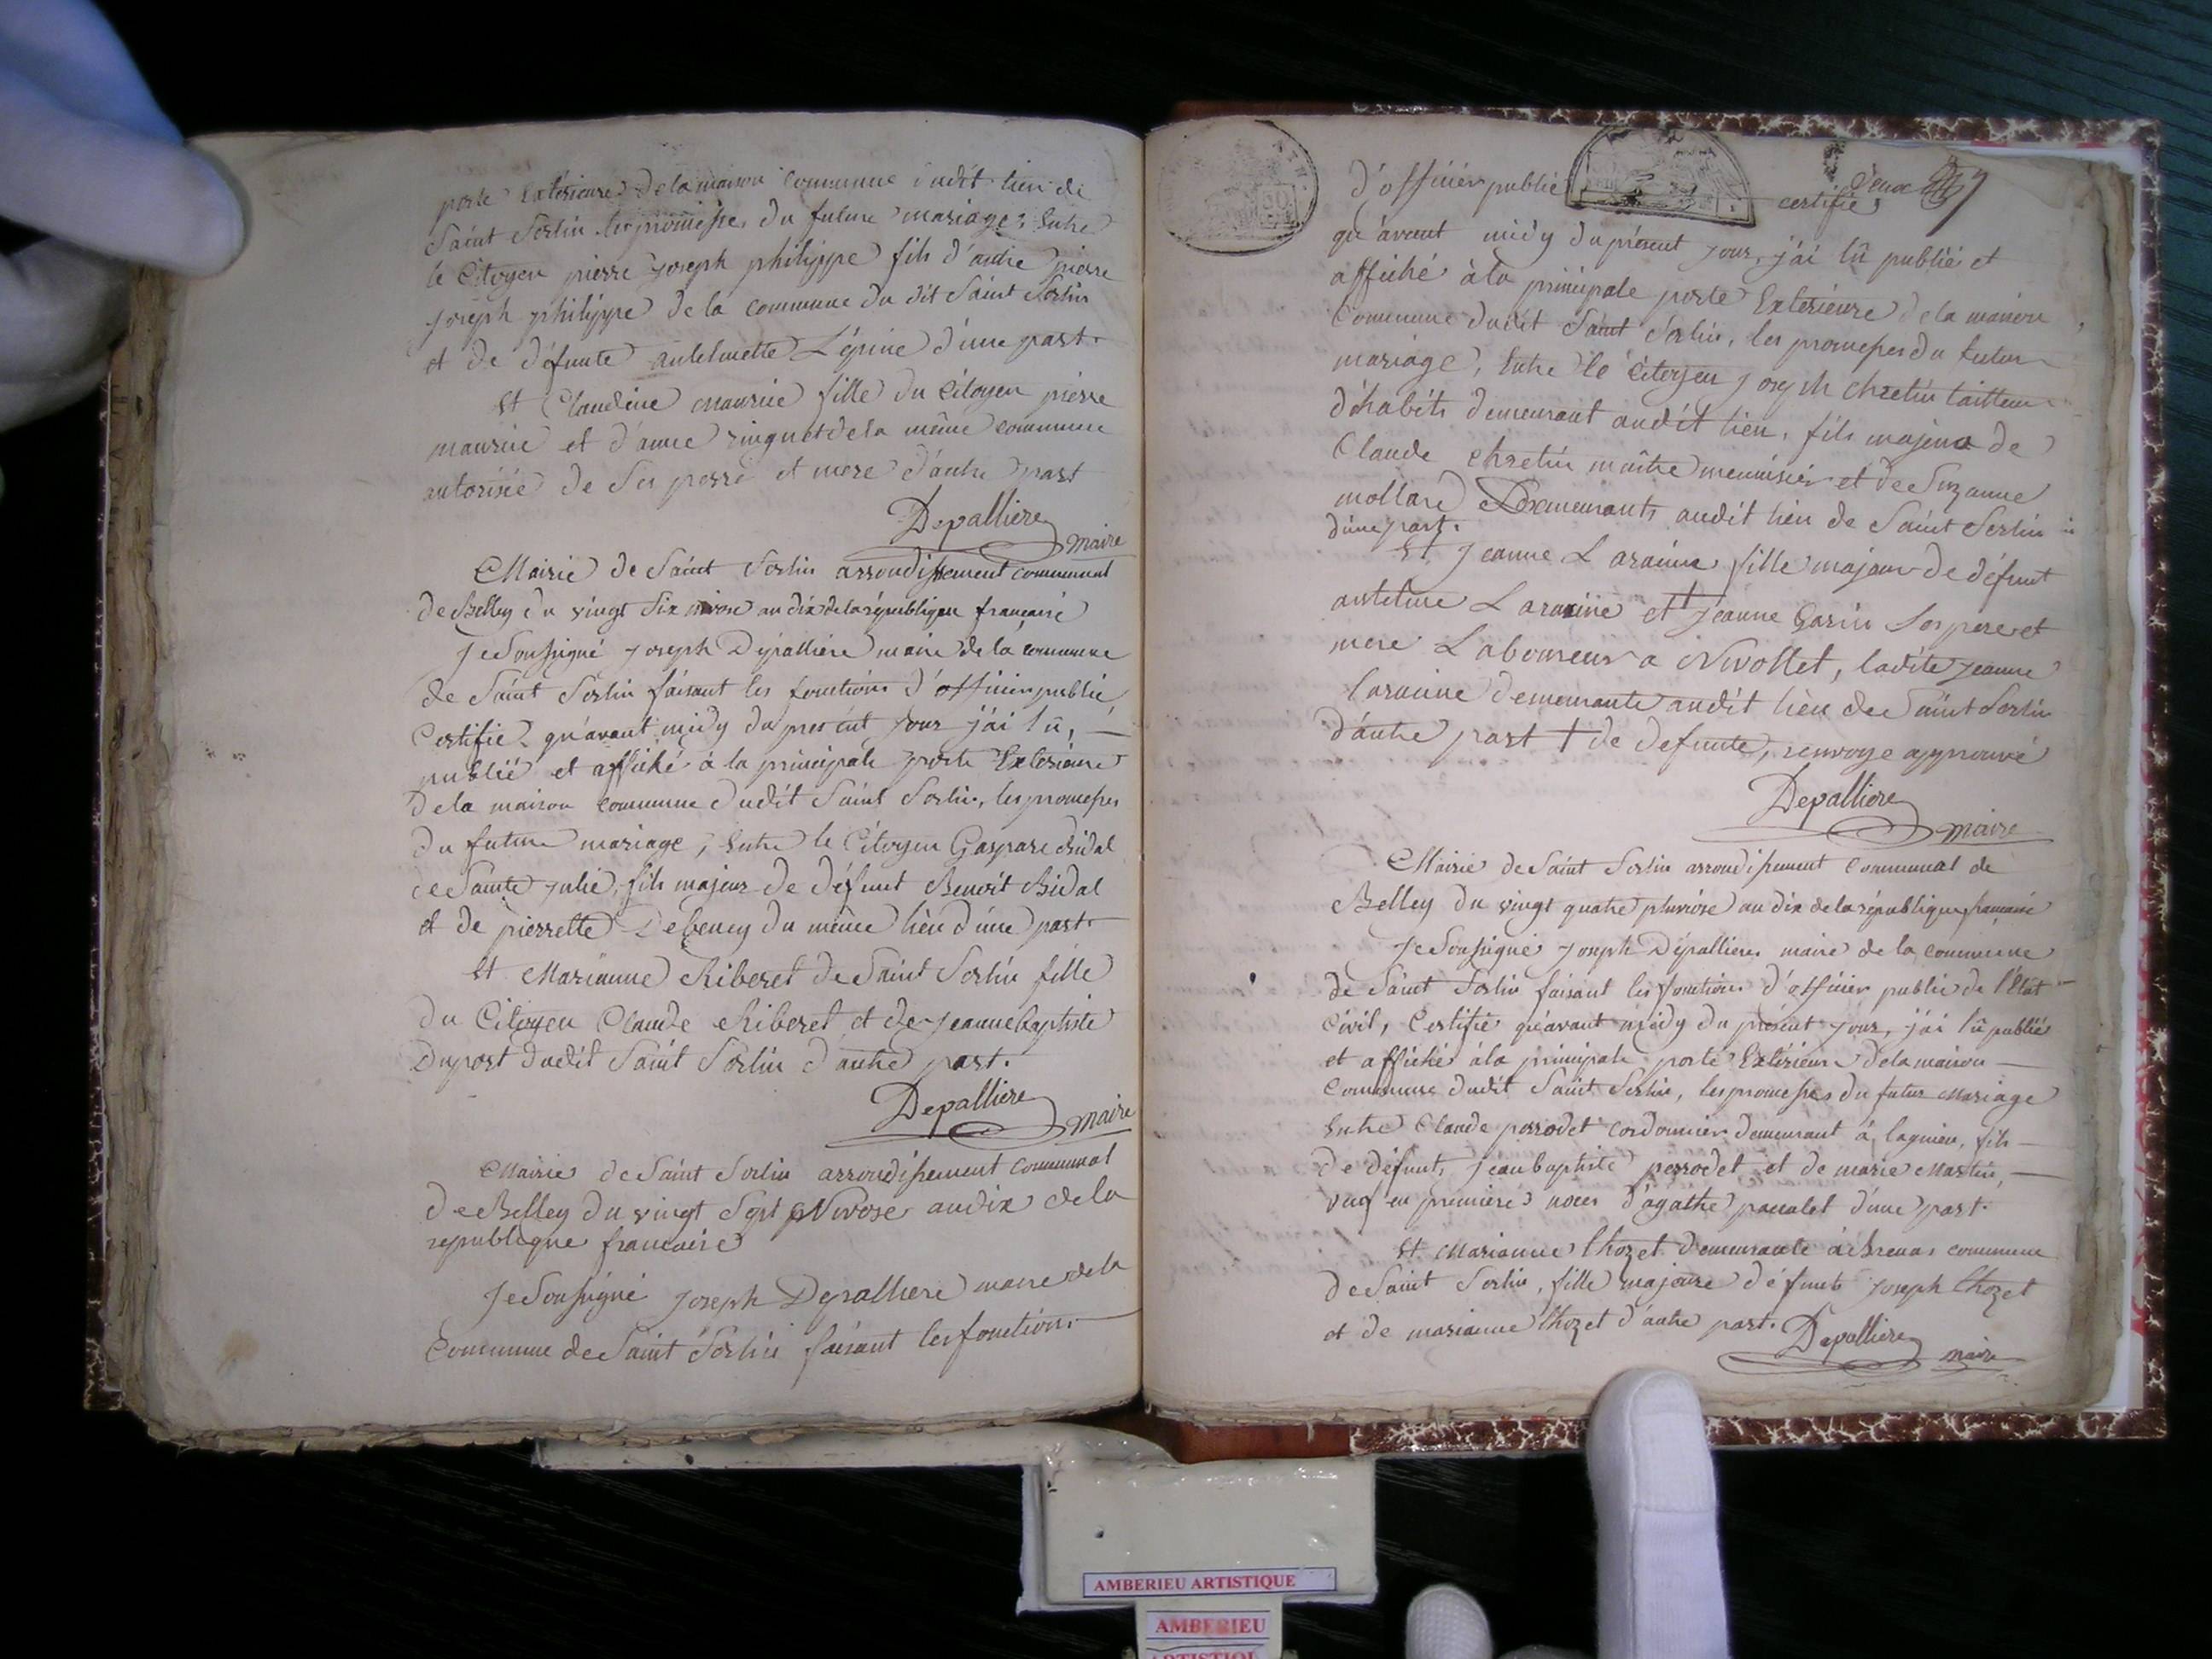 porte Extérieure de la maison commune dudit lieu de
Saint Sorlin les promesses du future mariage; Entre
le Citoyen pierre joseph philippe fils d'autre pierre
joseph philippe de la commune du dit Saint Sorlin
et de défunte antelmette Lépine d'une part.
Et Claudine Maurice fille du Citoyen pierre
maurice et d'anne ringuet de la même commune
autorisée de Ses perre et mere d'autre part
Depalliere maire
Mairie de Saint Sorlin arrondissement communal
de Belley du vingt Six nivose an dix de la république francaise
Je Soussigné Joseph Dépalliere maire de la commune
de Saint Sorlin faisant les fonctions d'officier public,
Certifie qu'avant midy du present jour j'ai lû,
publié et affiché à la principale porte Extérieure
de la maison commune dudit Saint Sorlin, les promesses
du future mariage, Entre le Citoyen Gaspard Bidal
de Sainte julie, fils majeur de défunt Benoit Bidal
et de pierrette Debeney du même lieu d'une part.
Et Marianne Riberet de Saint Sorlin fille
du Citoyen Claude Riberet et de jeanne baptiste
Duport dudit Saint Sorlin d'autre part.
Depalliere maire
Mairie de Saint Sorlin arrondissement communal
de Belley du vingt Sept Nivose an dix de la
republique francaise
Je Soussigné Joseph Depalliere maire de la
Commune de Saint Sorlin faisant les fonctions
deux
d'officier public certifie,
qu'avant midy du présent jour, j'ai lû publié et
affiché à la principale porte Extérieure de la maison
Commune dudit Saint Sorlin, les promesses du futur
mariage, Entre le Citoyen joseph chretin tailleur
d'habits demeurant audit lieu, fils majeur de
Claude chretin maître menuisier et de Suzanne
mollard Demeurants audit lieu de Saint Sorlin
d'une part.
Et Jeanne Laraine fille majeur de défunt
antelme Laraine et † jeanne Garin Ses pere et
mere Laboureur a Nivollet, ladite jeanne
laraine demeurante audit lieu de Saint Sorlin
d'autre part † de defunte, renvoye approuvé
Depalliere
maire
Mairie de Saint Sorlin arrondissement Communal de
Belley du vingt quatre pluviose an dix de la république francaise
Je Soussigné Joseph Dépalliere maire de la commune
de Saint Sorlin faisant les fonctions d'officier public de l'Etat
Civil, Certifie qu'avant midy du présent jour, j'ai lû publié
et affiché à la principale porte Extérieure de la maison
Commune dudit Saint Sorlin, les promesses du futur Mariage
Entre Claude perrodet cordonnier demeurant à lagnieu, fils
de défunts jean baptiste perrodet et de marie Martin,
veuf en premieres noces d'agathe d'une part.
Et Marianne Chozet demeurante à commune
de Saint Sorlin, fille majeure défunts joseph Chozet
et de marianne Chozet d'autre part.
Depalliere
maire
AMBERIEU ARTISTIQUE
AMBERIEU
ARTISTIQUE